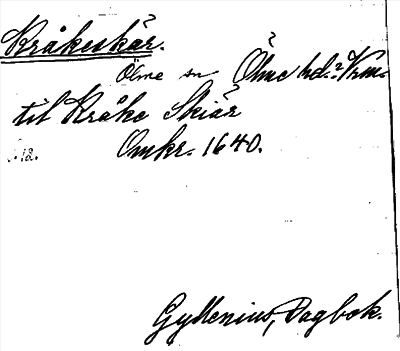 Kråkeskär.
Ölme sn Ölme hd. Vrm.
til Kråke Skiär
Omkr. 1640.
Gyllenius, Dagbok.